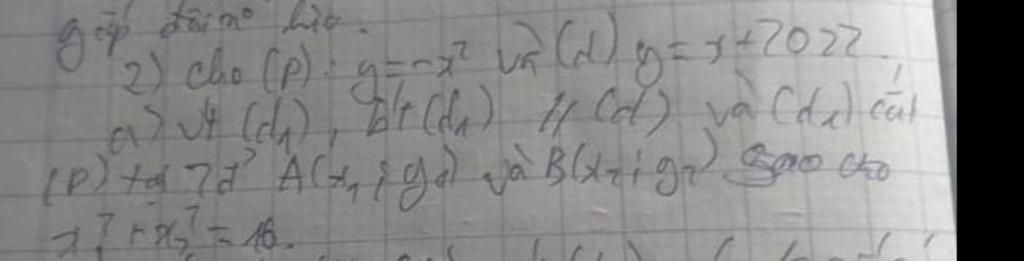 gấp đôi
2) cho (P): y=-x² và (d) y=x+2022.
a) vt (d₁), bt (d₁) // (d) và (d₁) cắt
(P) tại 2đ' A(x₁; y₁) và B(x₂; y₂) sao cho
x₁² + x₂² = 16.